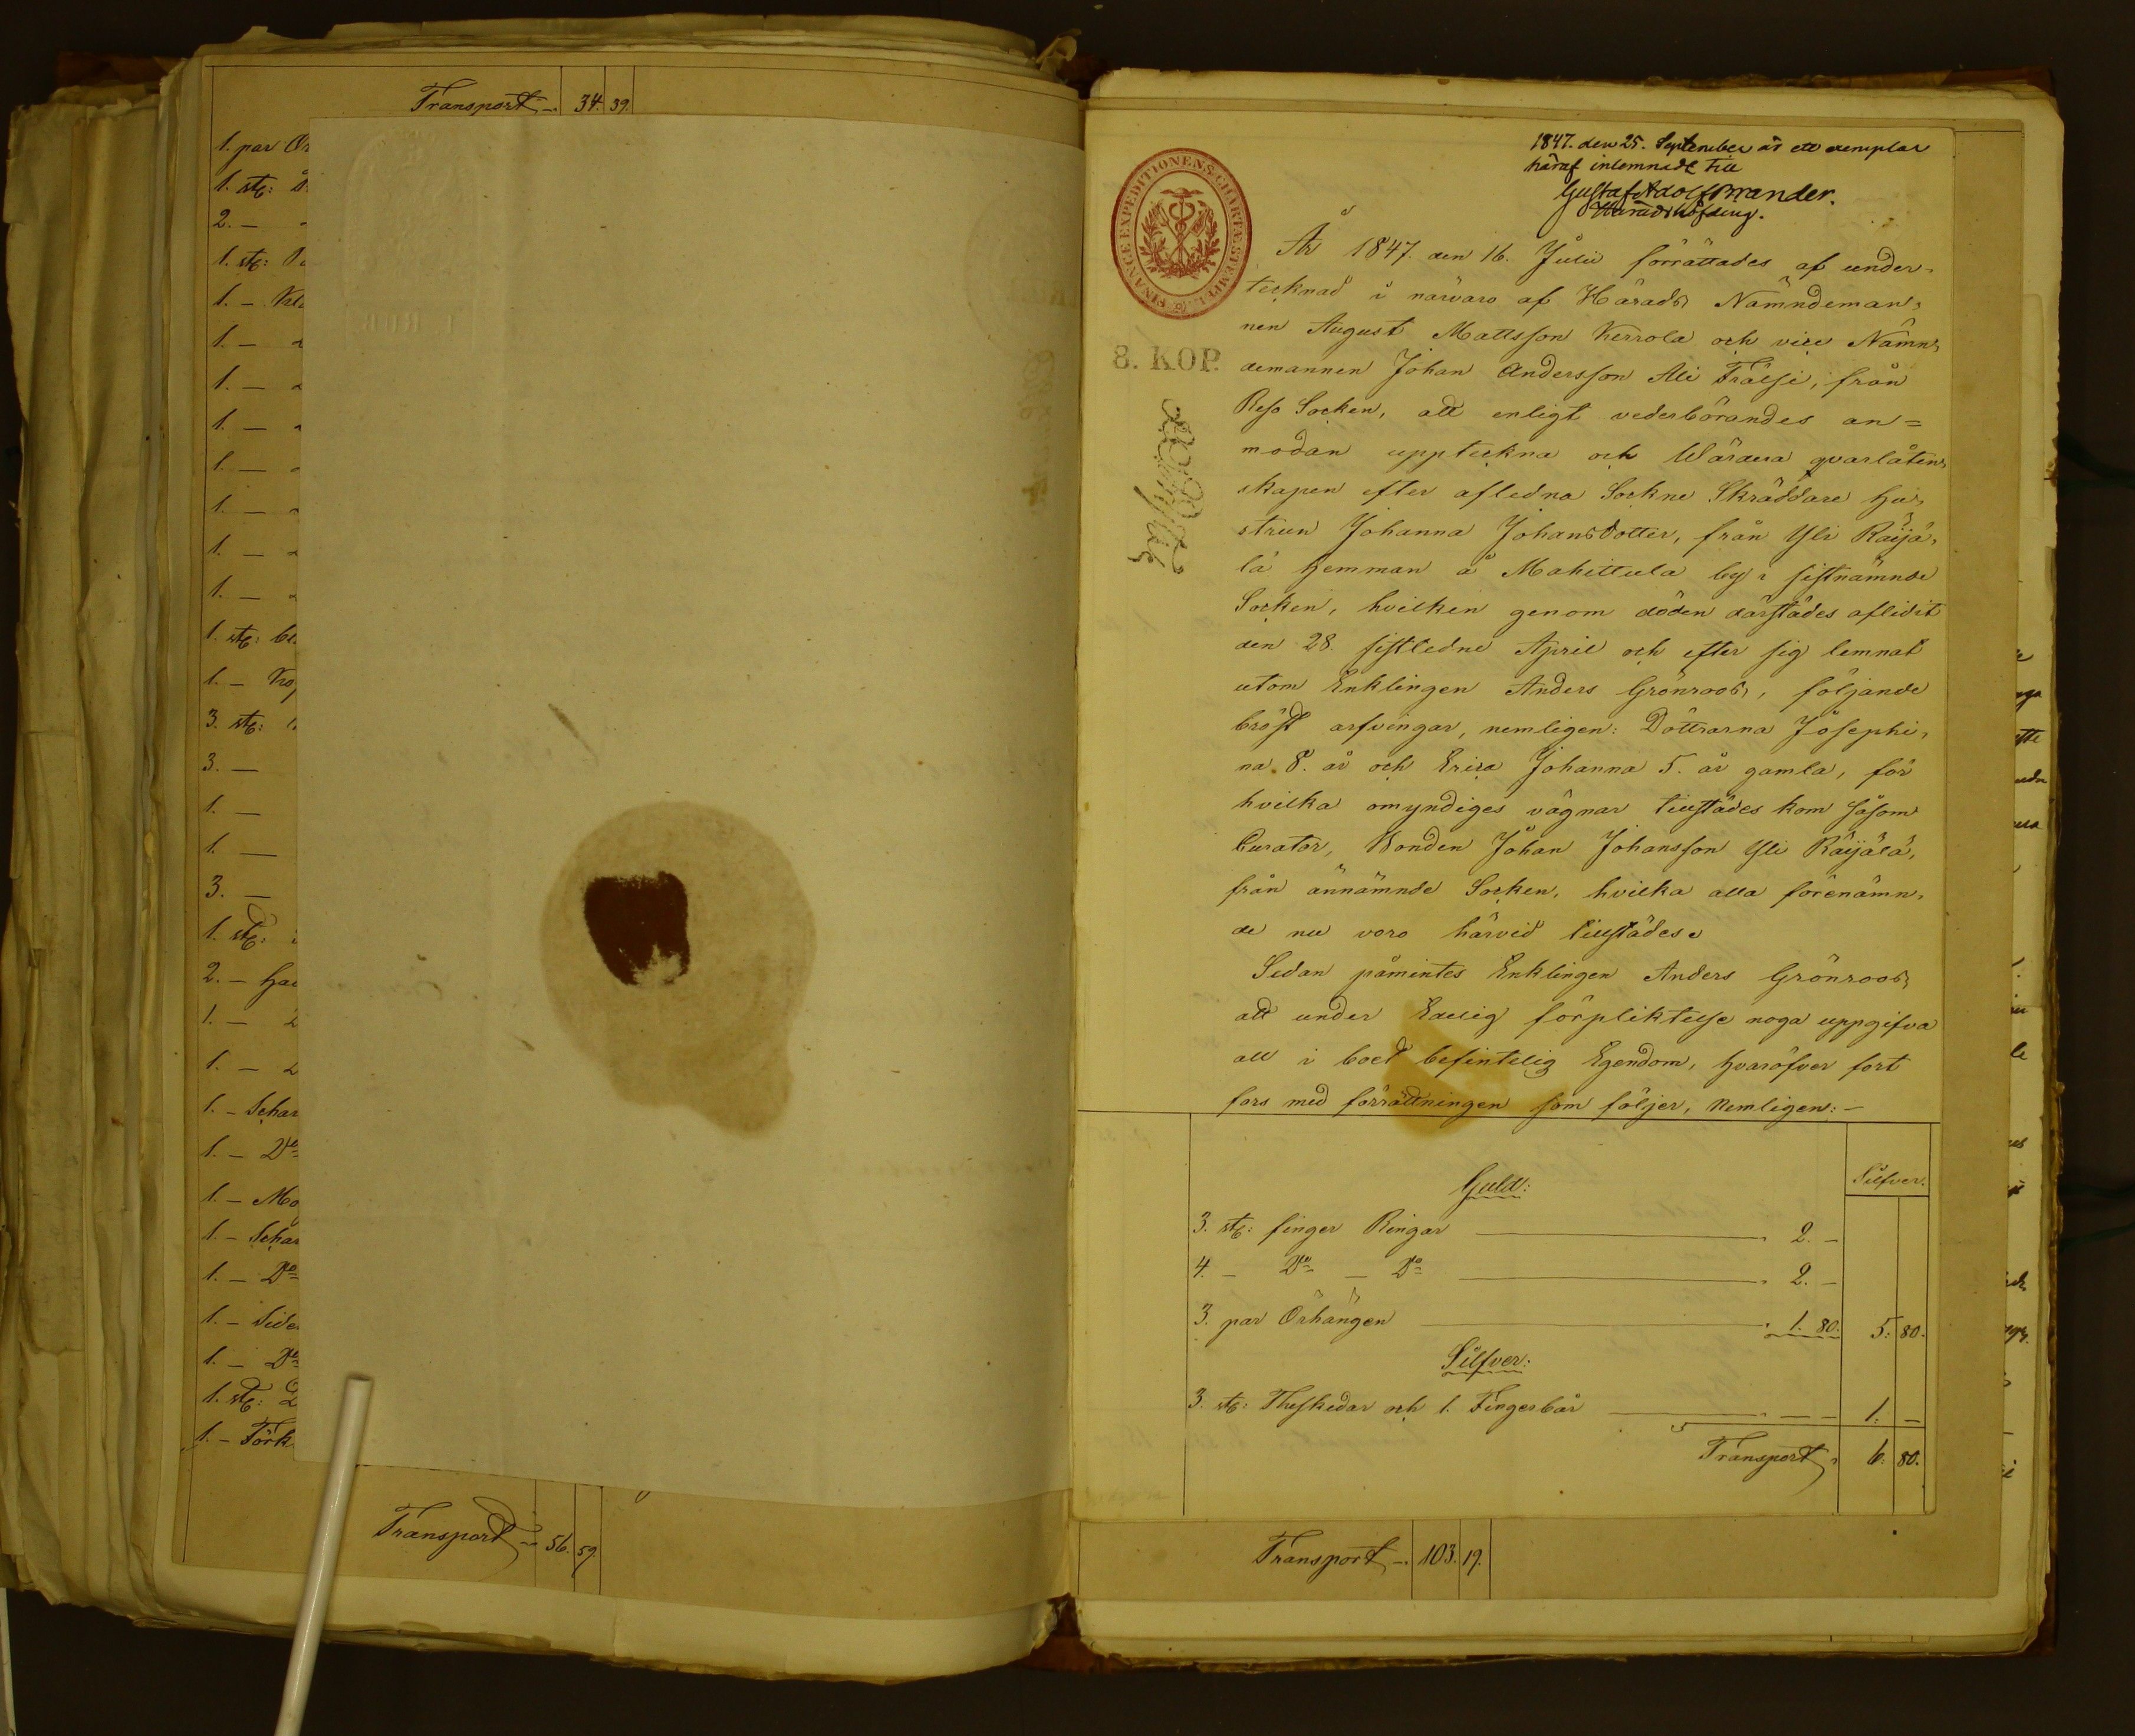 Transport 34. 39.
1. par
1. stc:
2. –
1. stc:
1. –
1. –
1. –
1. –
1. –
1. –
1. –
1. –
1. stc:
1. –
3. stc:
3. –
1. –
1. –
3. –
1. stc:
2. –
1. –
1. –
1. – Schar
1. – Do
1. – Mo
1. – Schar
1. – Do
1. – Side
1. – Do
1. stc:
1. – Törk
Transport 56. 59.
1847. den 25. September är ett exemplar
häraf inlemnadt till
Gustaf Adolf Brander.
Häradshöfding.
FINANCE EXPEDITIONENS CHARTÆ STEMPEL
8. KOP.
År 1847. den 16. Julii förrättades af under-
tecknad i närvaro af Härads Nämndeman-
nen August Mattsson Kerrola och vice Nämn-
demannen Johan Andersson Ali Frälsi, från
Reso Socken, att enligt vederbörandes an=
modan uppteckna och Wärdera qvarlåten-
skapen efter aflidna Sockne Skräddare hu-
strun Johanna Johansdotter, från Yli Räijä-
lä hemman å Mahittula by i sistnämnde
Socken, hvilken genom döden därstädes aflidit
den 28. sistledne April och efter sig lemnat
utom Enklingen Anders Grönroos, följande
bröst arfvingar, nemligen: Döttrarna Josephi-
na 8. år och Erica Johanna 5. år gamla, för
hvilka omyndiges vägnar tillstädes kom såsom
Curator, Bonden Johan Johansson Yli Räijälä,
från ännämnde Socken, hvilka alla förenämn-
de nu voro härvid tillstädes.
Sedan påmintes Enklingen Anders Grönroos
att under Edelig förpliktelse noga uppgifva
all i boet befintelig Egendom, hvaröfver fort
fors med förrättningen som följer, Nemligen: –
Silfver.
Guld:
3. stc: finger Ringar 2. –
4. – Do – Do 2. –
3. par Örhängen 1. 80. 5. 80.
Silfver:
3. stc: Theskedar och 1. Fingerbår – – 1. –
Transport 6. 80.
Transport 103. 19.